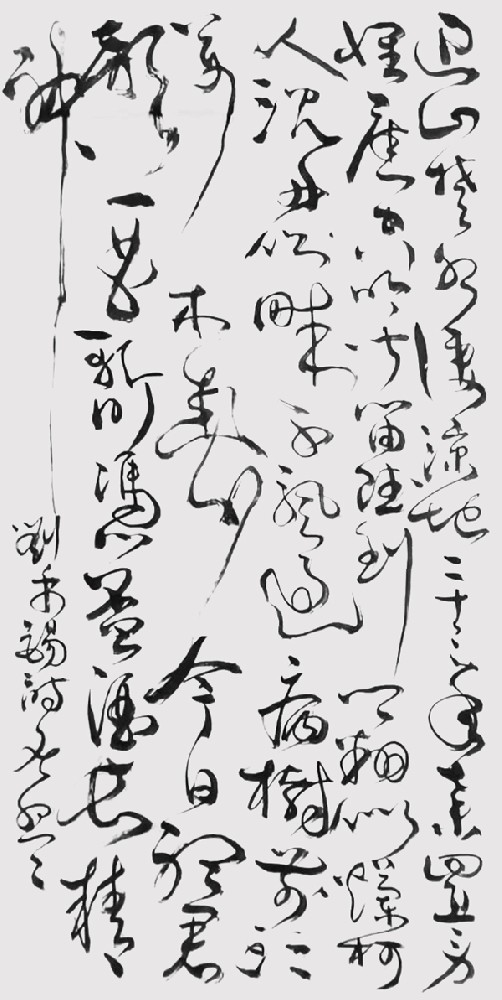 巴山楚水淒涼地二十三年棄置身
懷舊空吟聞笛賦到鄉翻似爛柯
人沉舟側畔千帆過病樹前頭
萬木春今日聽君
歌一曲暫憑盃酒長精
神劉禹錫詩